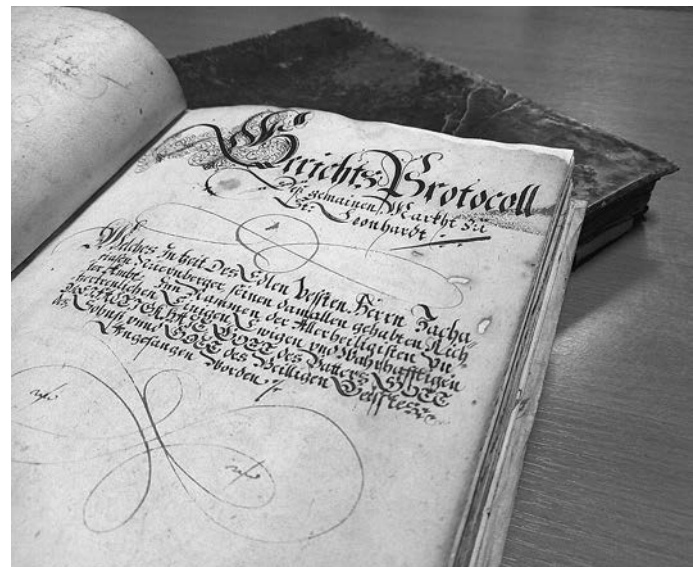 Gerichts Protocoll
Deß gemainen Markht Zu
St: Leonhardt
Welches In Zeit Des Edlen Vesten Herrn Zacha
riaßen seinen damallen gehabten Rich
ter Ambt. Inn Nammen der Allerheiligisten Vn
Zertrenlichen Einigen Ewigen vnd Wahrhafftigen
DREYFALTIGKHEIT GOTT des Vatters GOTT
des Sohnß vnnd GOTT des Heilligen Geystes
Angefangen Worden